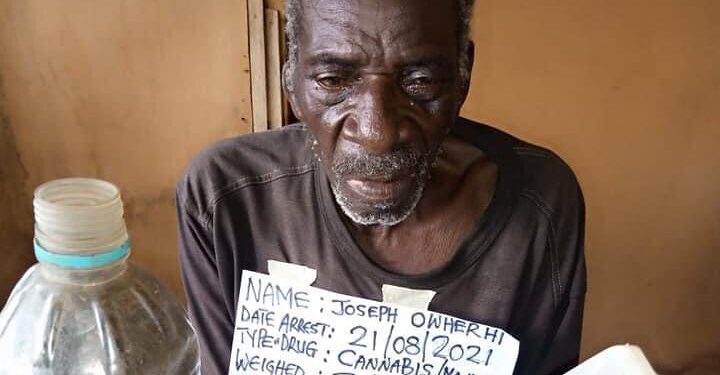 NAME : JOSEPH OWHERHI
DATE ARREST: 21/08/2021
TYPE DRUG : CANNABIS/
WEIGHED